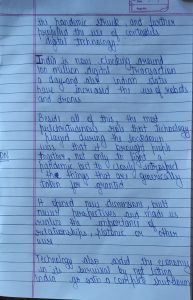 the pandemic struck and further
propelled the use of
digital technology.
India is now clocking around
100 million digital transaction
a day and also Indian states
have increased the use of robots
and drones
Besides all of this, the most
role that technology
played during the lockdown
was that it brought
together, not only to fight a
pandemic but to closely introspect
the things that are generically
taken for granted
It opened new dimensions, built
novel perspectives and made us
realise the importance of
relationships, platonic or other
wise.
Technology also aided the economy
in its survival by not letting
India go into a complete shutdown